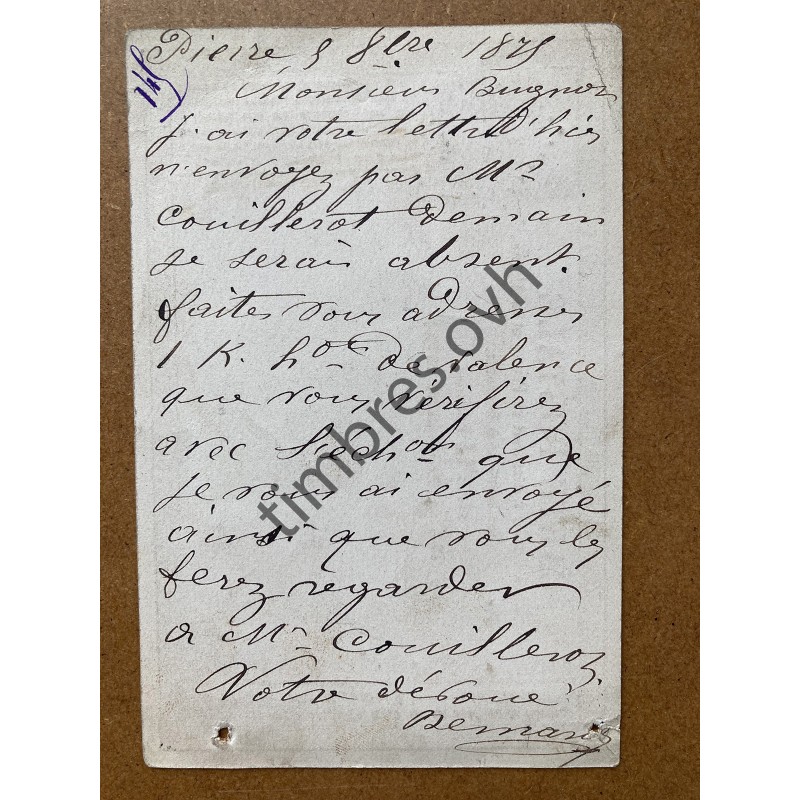 Pierre 9 8bre 1875
145
Monsieur Bugnon
J'ai votre lettre d'hier
n'envoyez pas Mr
Couillerot demain
je serais absent.
faites vous adresser
1 K. hle de valence
que vous vérifirez
avec l'échon que
je vous ai envoyé
ainsi que vous les
ferez regarder
a Mr Couillerot
Votre dévoué
timbres.ovh